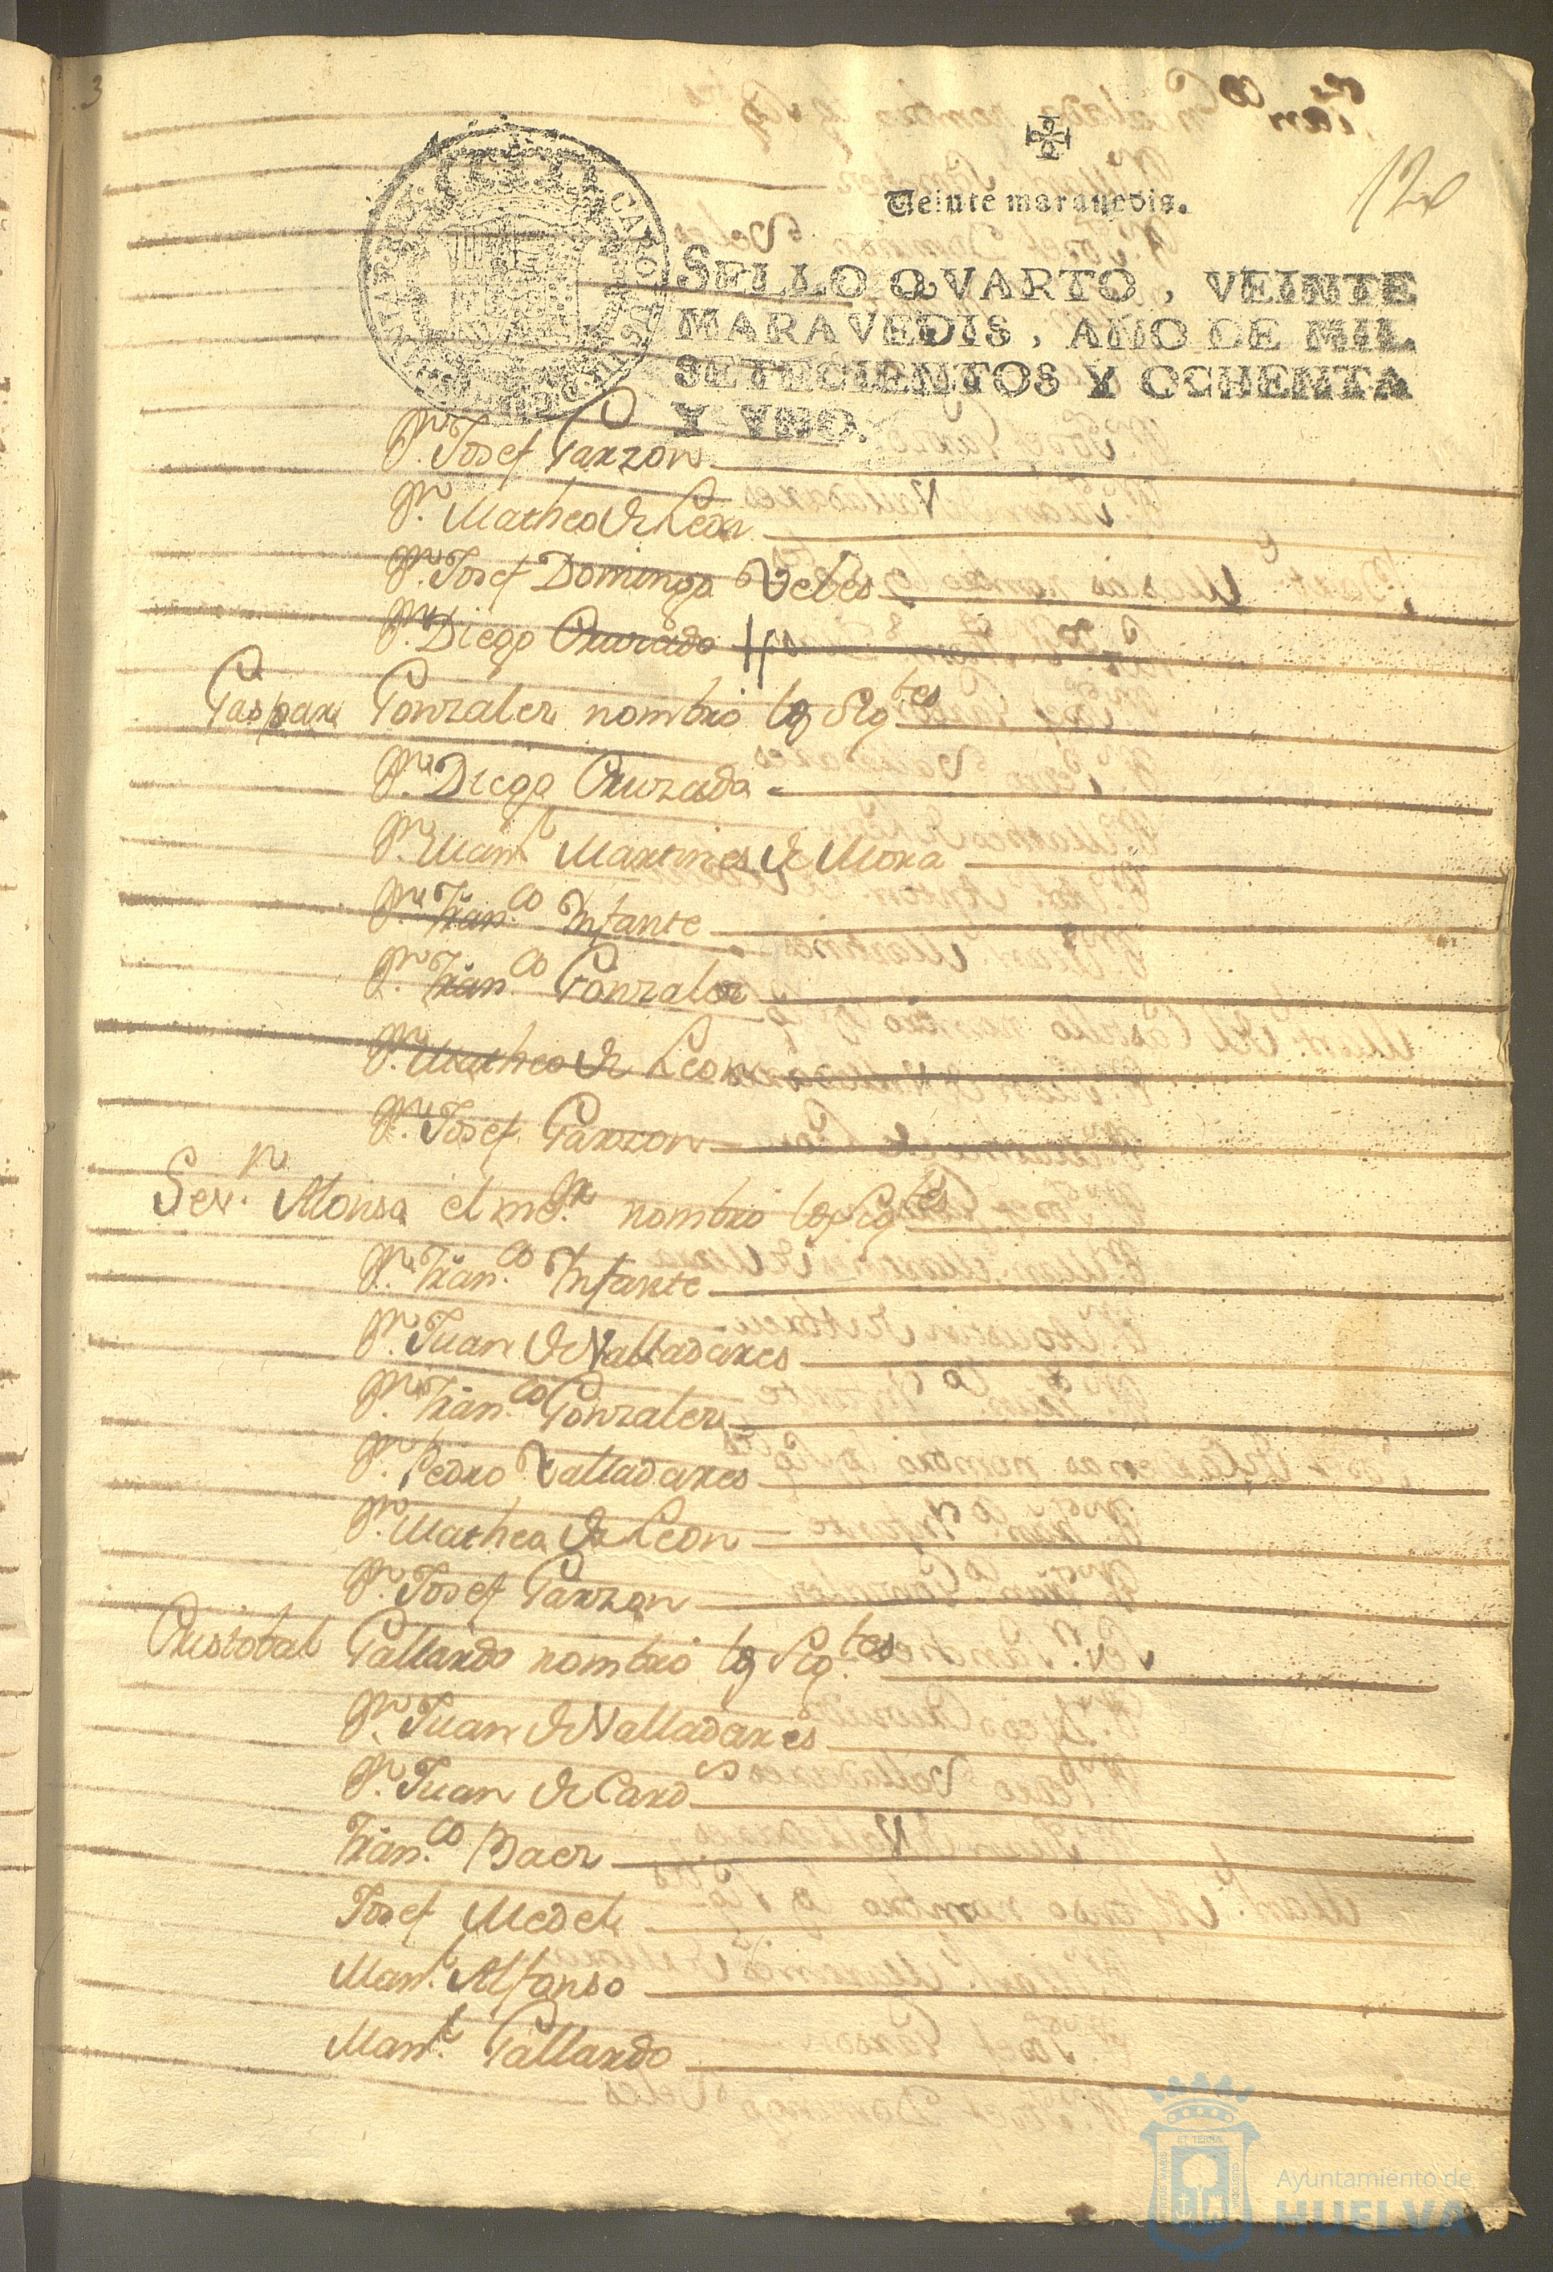 3
120
Veinte maravedis.
SELLO QVARTO, VEINTE
MARAVEDIS, AÑO DE MIL
SETECIENTOS Y OCHENTA
Y VNO.
Pr. Josef Garzon
Pr. Matheo de Leon
Pr. Josef Domingo Veles
Pr. Diego Cruzado
Gaspar Gonzalez nombro los Sigtes
Pr. Diego Cruzado
Pr. Manl. Martines de Mora
Pr. Franco. Infante
Pr. Franco. Gonzalez
Pr. Matheo de Leon
Pr. Josef Garzon
Sevn. Alonso el mor. nombro los Sigtes
Pr. Franco. Infante
Pr. Juan de Valladares
Pr. Franco. Gonzalez
Pr. Pedro Valladares
Pr. Matheo de Leon
Pr. Josef Garzon
Cristobal Gallardo nombro los Sigtes
Pr. Juan de Valladares
Pr. Juan de Cards
Franco. Baez
Josef Medel
Manl. Alfonso
Manl. Gallardo
Ayuntamiento de
HUELVA